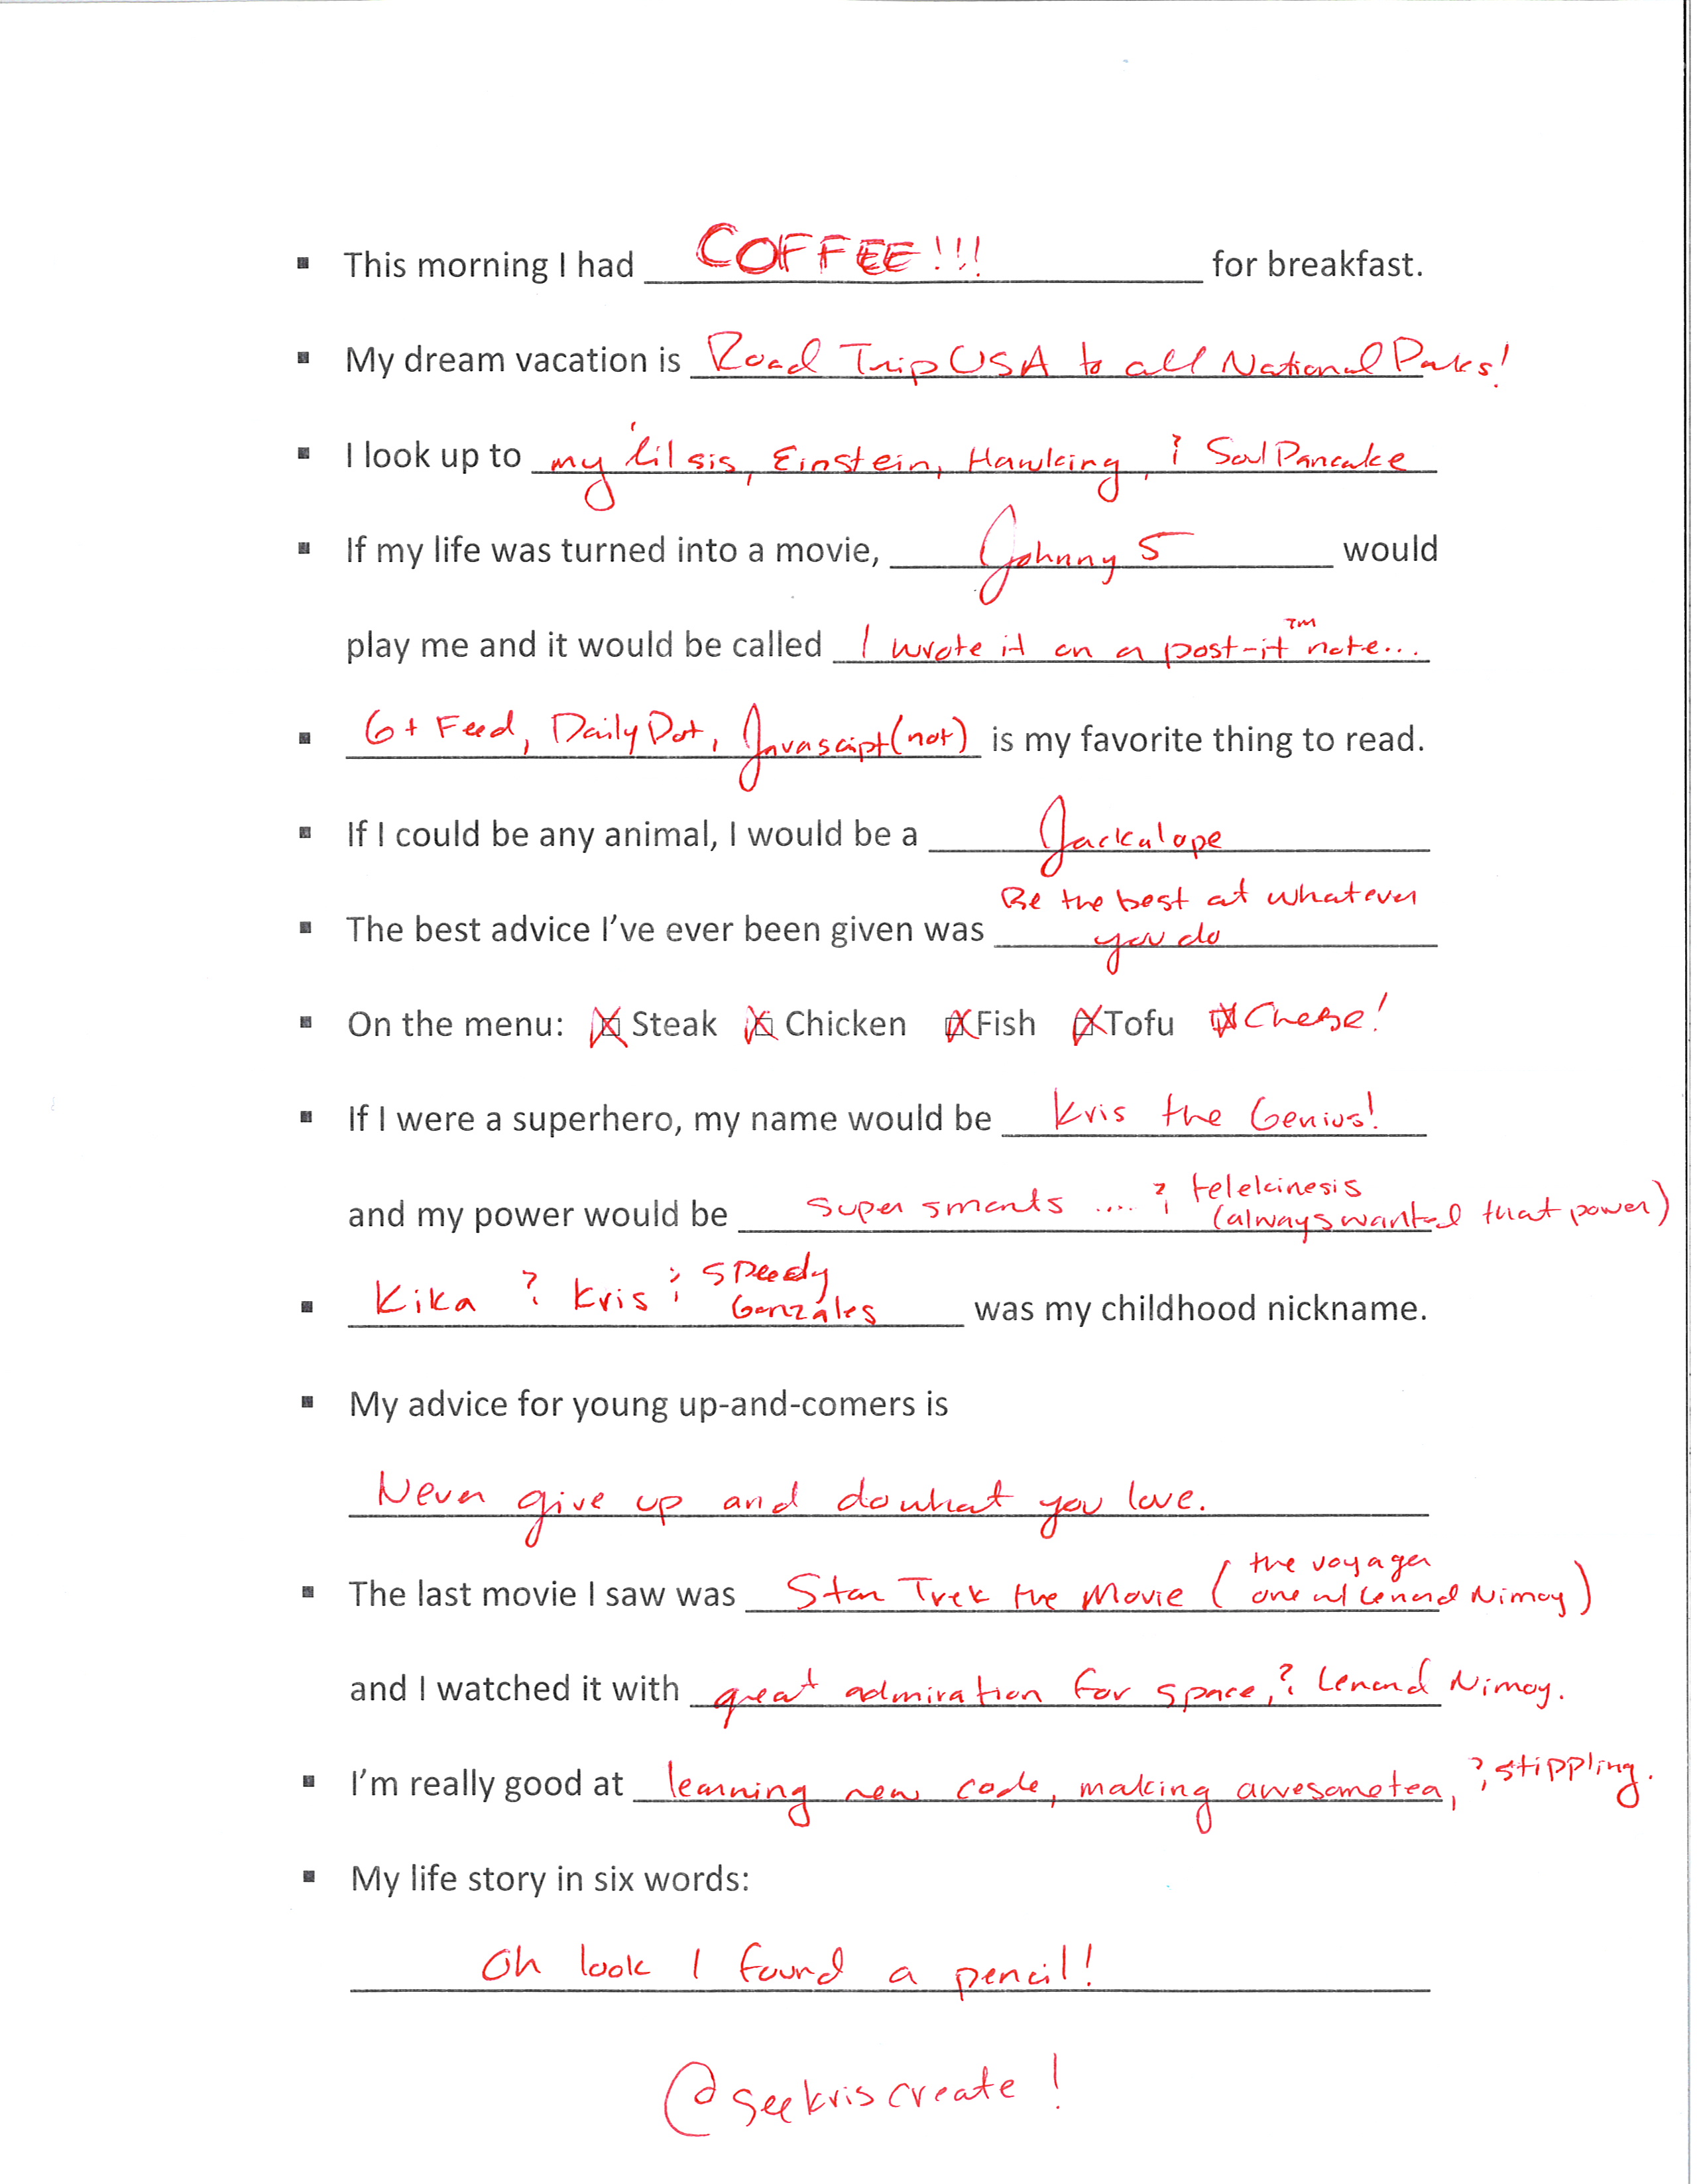 ▪ This morning I had COFFEE!!! for breakfast.
▪ My dream vacation is Road Trip USA to all National Parks!
▪ I look up to my 'lil sis, Einstein, Hawking, & Soul Pancake
▪ If my life was turned into a movie, Johnny 5 would
play me and it would be called I wrote it on a post-it™ note...
▪ G+ Feed, Daily Dot, Javascript (not) is my favorite thing to read.
▪ If I could be any animal, I would be a Jackalope
Be the best at whatever
▪ The best advice I've ever been given was you do
▪ On the menu: ☒ Steak ☒ Chicken ☒ Fish ☒ Tofu ☒ Cheese!
▪ If I were a superhero, my name would be Kris the Genius!
and my power would be super smarts .... & telekinesis
(always wanted that power)
Kika & Kris & Speedy
▪ Gonzales was my childhood nickname.
▪ My advice for young up-and-comers is
Never give up and do what you love.
the voyager
▪ The last movie I saw was Star Trek the Movie ( one w/ Lenard Nimoy)
and I watched it with great admiration for space, & Lenard Nimoy.
▪ I'm really good at learning new code, making awesome tea, & stippling.
▪ My life story in six words:
Oh look I found a pencil!
@seekriscreate!